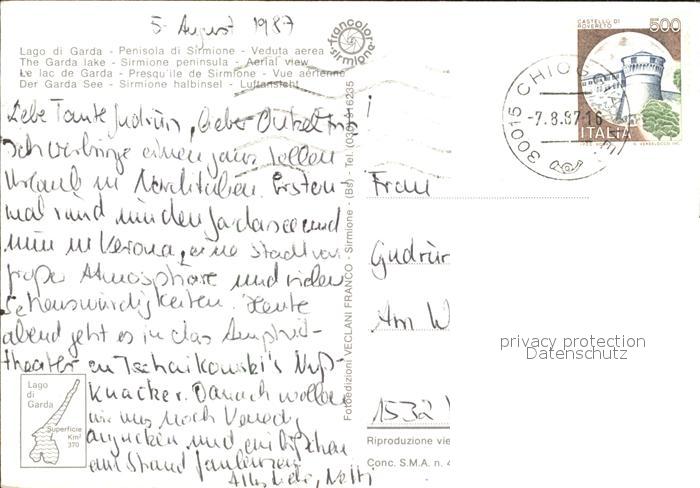 5. August 1987
francolore
sirmione
Lago di Garda - Penisola di Sirmione - Veduta aerea
The Garda lake - Sirmione peninsula - Aerial view
Le lac de Garda - Presqu'ile de Sirmione - Vue aérienne
Der Garda See - Sirmione halbinsel - Luftansicht
Liebe Tante Gudrun, lieber Onkel
ich verbringe einen ganz tollen
Urlaub in Norditalien. Ersten-
mal rund um den Gardasee und
nun in Verona, eine Stadt von
großer Atmosphäre und vielen
Sehenswürdigkeiten. Heute
abend geht es in das Amphi-
theater zu Tschaikowski's Nuß-
knacker. Danach wollen
wir uns noch Venedig
angucken und ein bißchen
am Strand faulenzen
Alles Liebe, Netti
Lago
di
Garda
Superficie
Km²
370
Fotoedizioni VECLANI FRANCO - Sirmione - (Bs) - Tel. (030) 916235
CASTELLO DI
ROVERETO
500
ITALIA
30015 CHIOG
-7.8.87-16
Frau
Gudrun
Am W
1532
privacy protection
Datenschutz
Riproduzione vie
Conc. S.M.A. n. 4